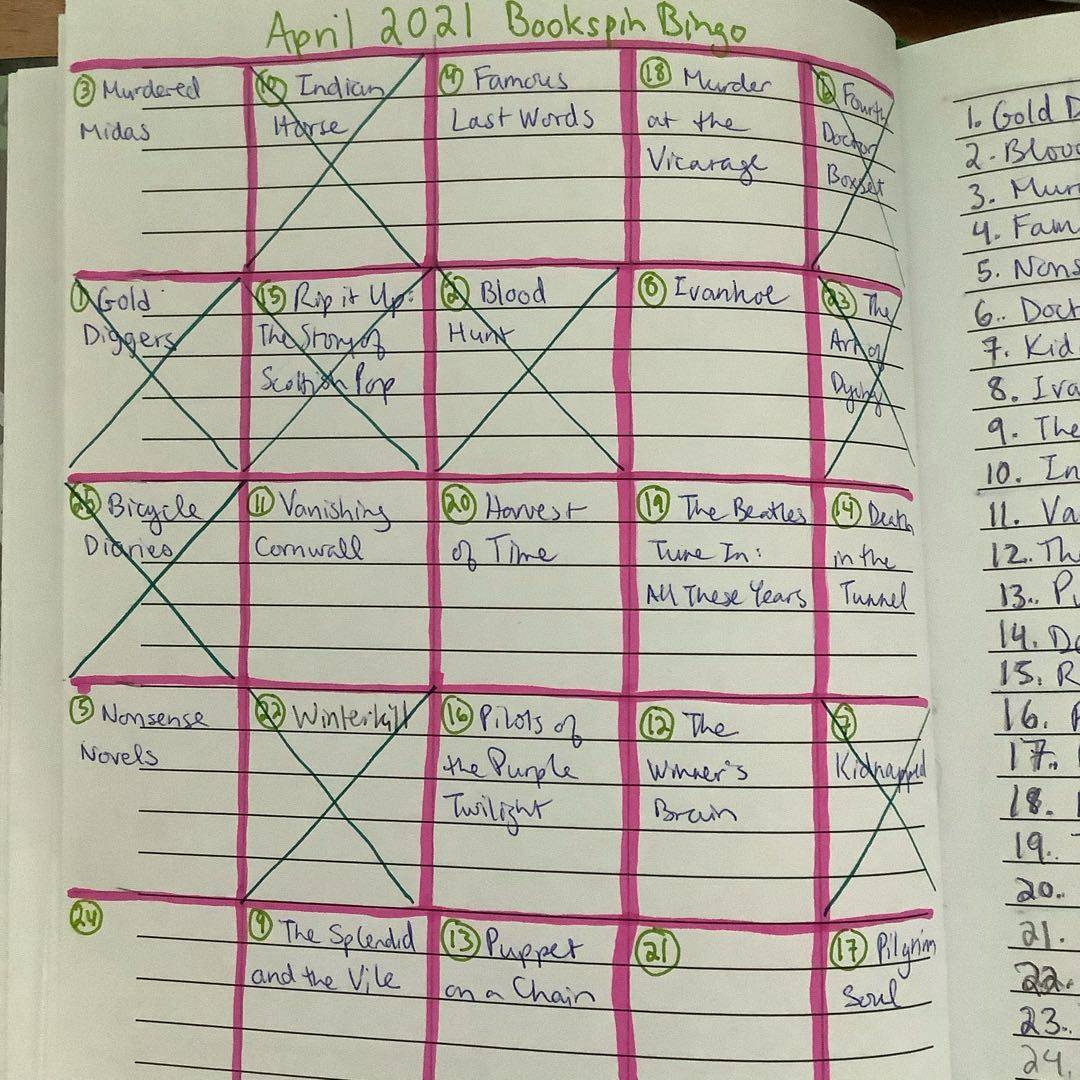 April 2021 Bookspin Bingo
3 Murdered
Midas
10 Indian
Horse
4 Famous
Last Words
18 Murder
at the
Vicarage
6 Fourth
Doctor
Boxset
1 Gold
Diggers
15 Rip it Up:
The Story of
Scottish Pop
2 Blood
Hunt
8 Ivanhoe
23 The
Art of
Dying
25 Bicycle
Diaries
11 Vanishing
Cornwall
20 Harvest
of Time
19 The Beatles
Tune In:
All These Years
14 Death
in the
Tunnel
5 Nonsense
Novels
22 Winterkill
16 Pilots of
the Purple
Twilight
12 The
Winner's
Brain
7
Kidnapped
24
9 The Splendid
and the Vile
13 Puppet
on a Chain
21
17 Pilgrim
Soul
1. Gold D
2. Bloo
3. Mur
4. Fam
5. Nons
6. Doct
7. Kid
8. Iva
9. The
10. In
11. Va
12. Th
13. Pu
14. De
15. R
16.
17.
18.
19.
20.
21.
22.
23.
24.